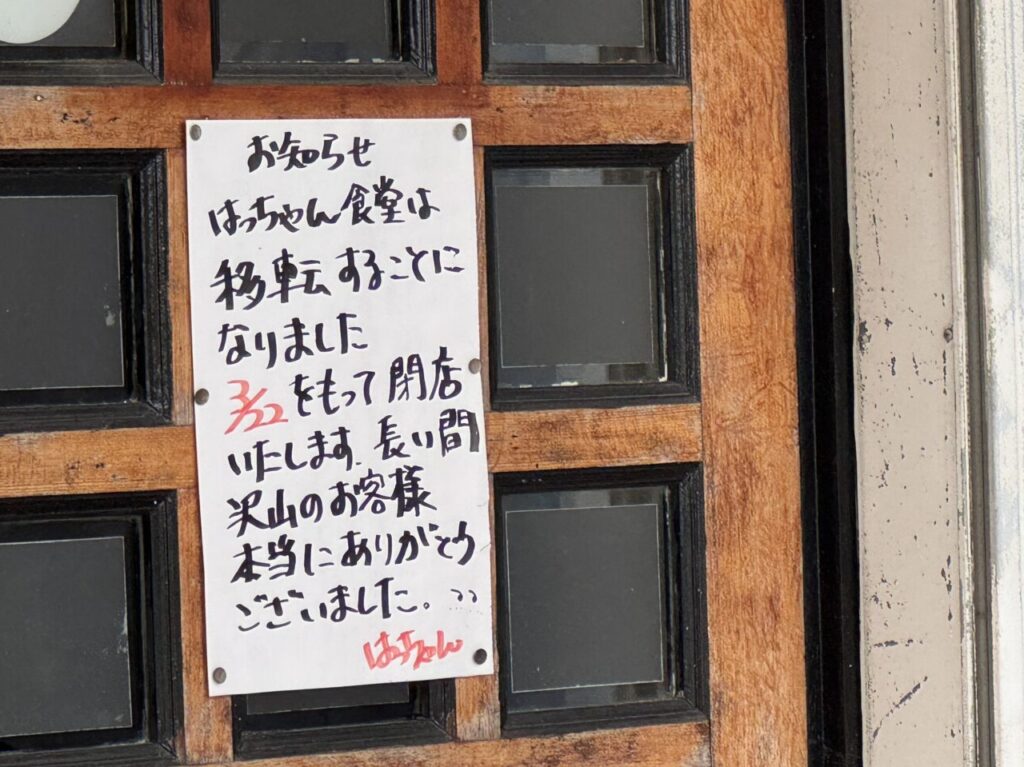 お知らせ
はっちゃん食堂は
移転することに
なりました
3/22をもって閉店
いたします.長い間
沢山のお客様
本当にありがとう
ございました。
はっちゃん